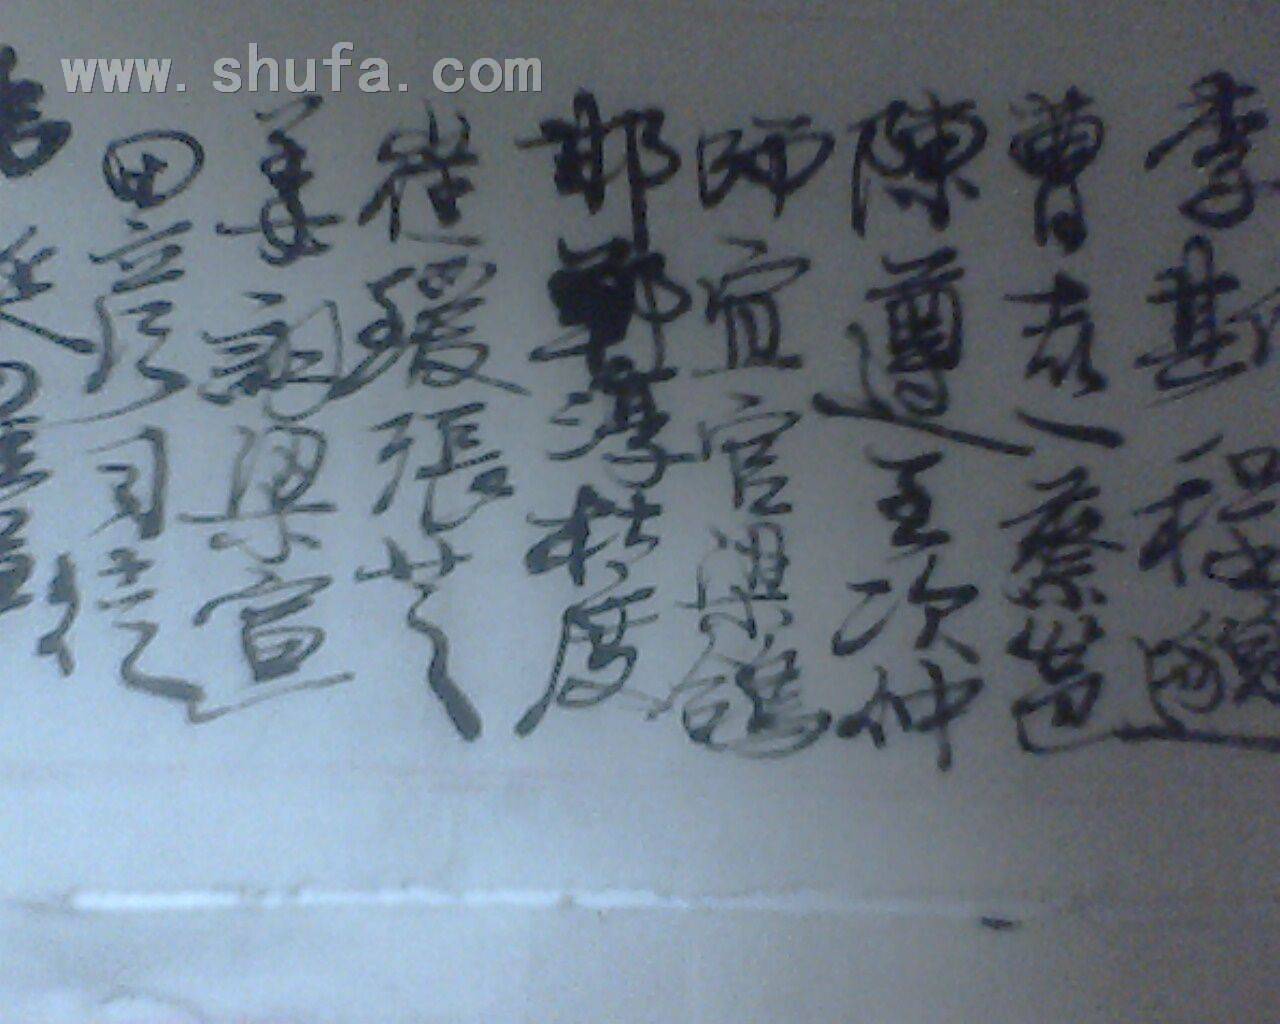 www.shufa.com
李斯程邈
曹喜蔡邕
陳遵王次仲
師宜官梁鵠
邯鄲淳杜度
崔瑗張芝
姜詡梁宣
田彥司徒